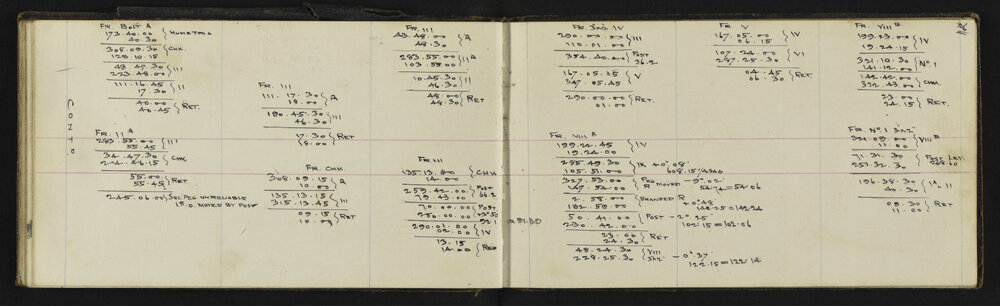 FR BOLT A
173.40.00 } HOMETAG
40.30
308.09.30 } CHK.
128.10.15
43.47.30 } III
223.48.00
111.16.45 } II
17.30
40.00 } RET.
40.45
CONTD
FR. II A
283.55.00 } III
55.45
34.47.30 } CHK.
214.46.15
55.00 } RET.
55.45
245.06.00 } SEC PEG UNRELIABLE
18.0 MOVED BY POST
FR. III
111.17.30 } A
18.00
190.45.30 } III
46.30
17.30 } RET
18.00
FR. CHK.
308.09.15 } A
10.00
135.13.15 } III
315.13.45
09.15 } RET
10.00
FR. III
43.48.00 } A
48.30
283.55.00 } II A
103.55.00
10.45.30 } II
46.30
48.00 } RET
48.30
FR. III
135.13.00 } CHK
14.00
259.42.00 } POST
79.43.00
70.00.00 } POST
250.00.00
290.01.00 } IV
02.00
13.15 } REC
14.00
FR. 3"x2" IV
290.00.00 } III
110.01.00
354.40.00 } POST
36.2
167.05.15 } V
347.05.45
290.00.00 } RET.
01.00
FR. VIII A
199.22.45 } IV
19.24.00
285.49.30 } IK +0°08'
105.51.00 608.15/ASAG
327.53.00 } PEG - 9°.02'
147.54.00 R MOVED 54.74 = 54.06
2.58.00 } BRANPED R +0°48'
182.59.00 142.25 = 142.24
50.41.00 } POST - 2° 25'
230.42.00 102.15 = 102.06
23.00 } RET
24.30
48.24.30 } VIII - 0°.37
228.25.30 3x2" 122.15 = 122.14
FR. V
167.05.00 } IV
06.15
107.24.00 } VI
287.25.30
04.45 } RET.
06.30
FR. VIII B
199.23.00 } IV
19.24.15
321.10.30 } No 1
141.12.00
142.42.00 } CHK.
322.43.00
23.00 } RET.
24.15
FR. No 1 3"x2"
321.09.00 } VIII B
11.00
71.31.30 } POST LEV.
251.32.30
196.38.30 } II
40.30
09.30 } RET
11.00